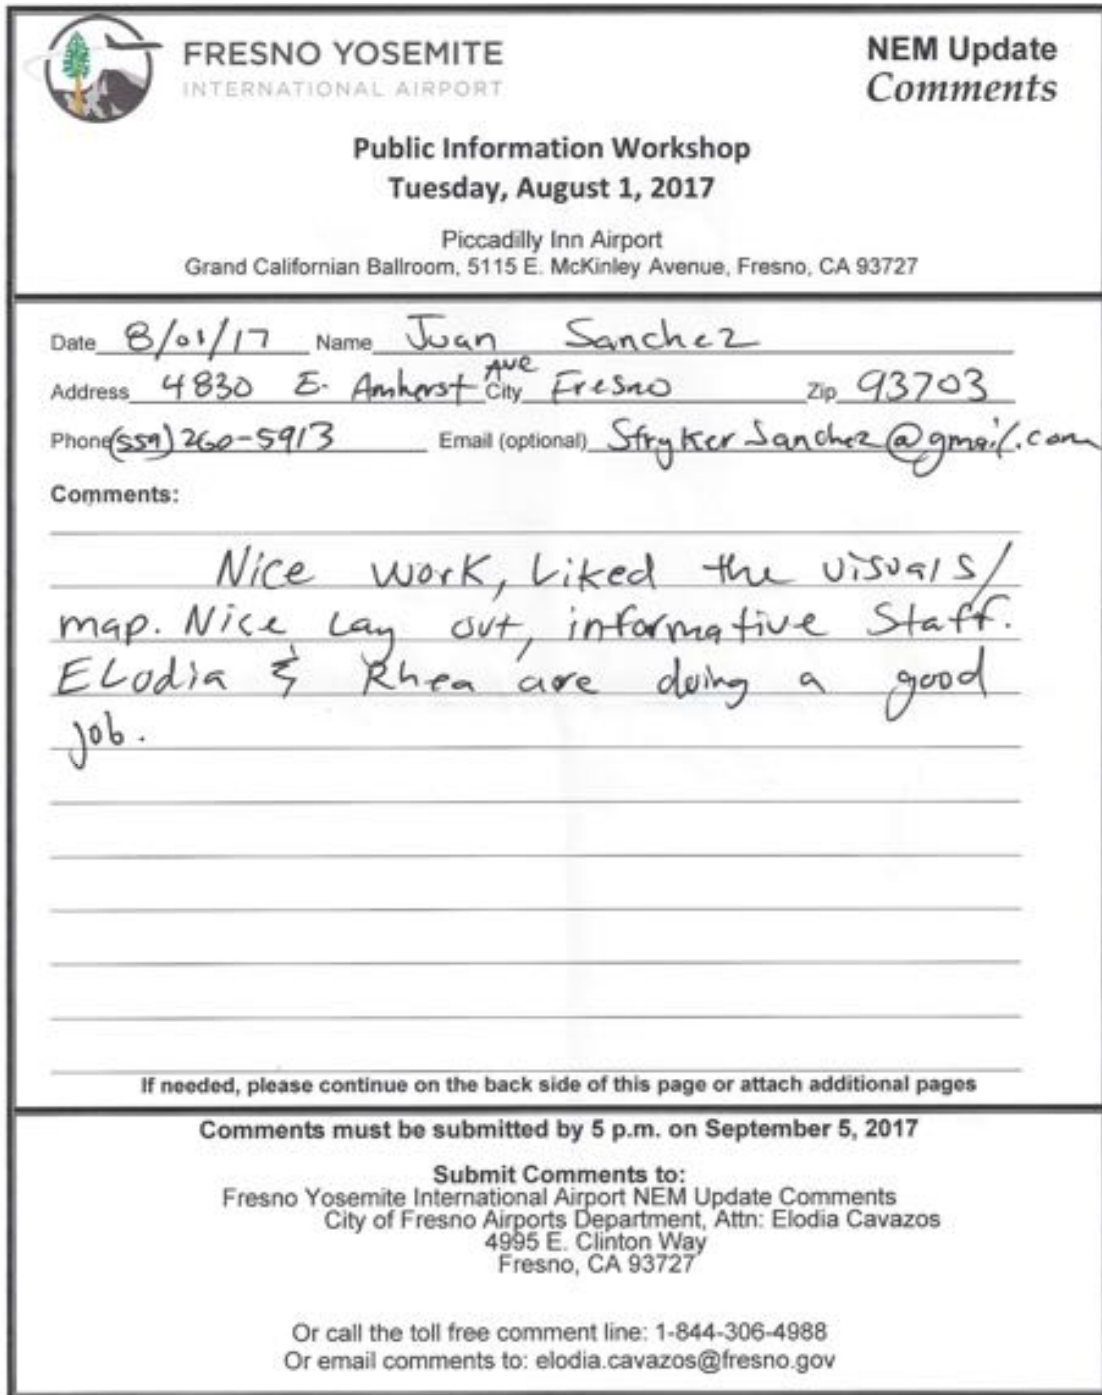 FRESNO YOSEMITE
INTERNATIONAL AIRPORT
NEM Update
Comments
Public Information Workshop
Tuesday, August 1, 2017
Piccadilly Inn Airport
Grand Californian Ballroom, 5115 E. McKinley Avenue, Fresno, CA 93727
Date 8/01/17 Name Juan Sanchez
Address 4830 E. Amherst Ave City Fresno Zip 93703
Phone (559) 260-5913 Email (optional) StrykerSanchez@gmail.com
Comments:
Nice work, Liked the visuals/
map. Nice Lay out, informative Staff.
ELodia & Rhea are doing a good
job.
If needed, please continue on the back side of this page or attach additional pages
Comments must be submitted by 5 p.m. on September 5, 2017
Submit Comments to:
Fresno Yosemite International Airport NEM Update Comments
City of Fresno Airports Department, Attn: Elodia Cavazos
4995 E. Clinton Way
Fresno, CA 93727
Or call the toll free comment line: 1-844-306-4988
Or email comments to: elodia.cavazos@fresno.gov